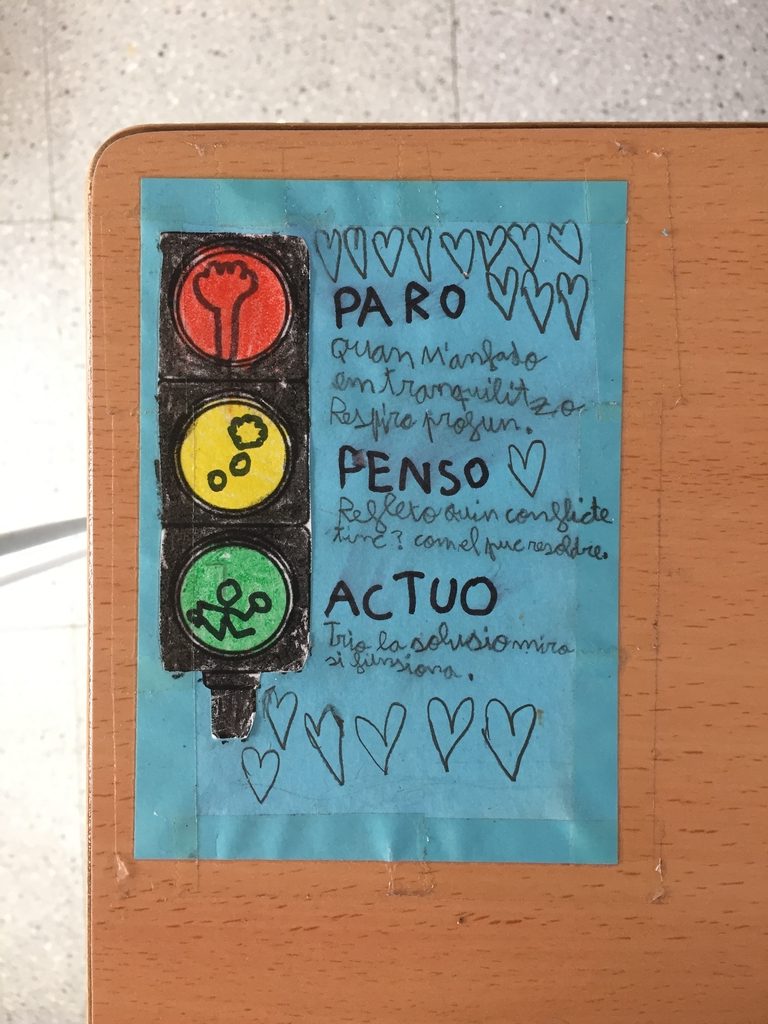 PARO
Quan m'anfado
em tranquilitzo
Respiro profun.
PENSO
Reflexo quin conflicte
tinc? com el puc resoldre.
ACTUO
Trio la solusio miro
si funsiona.